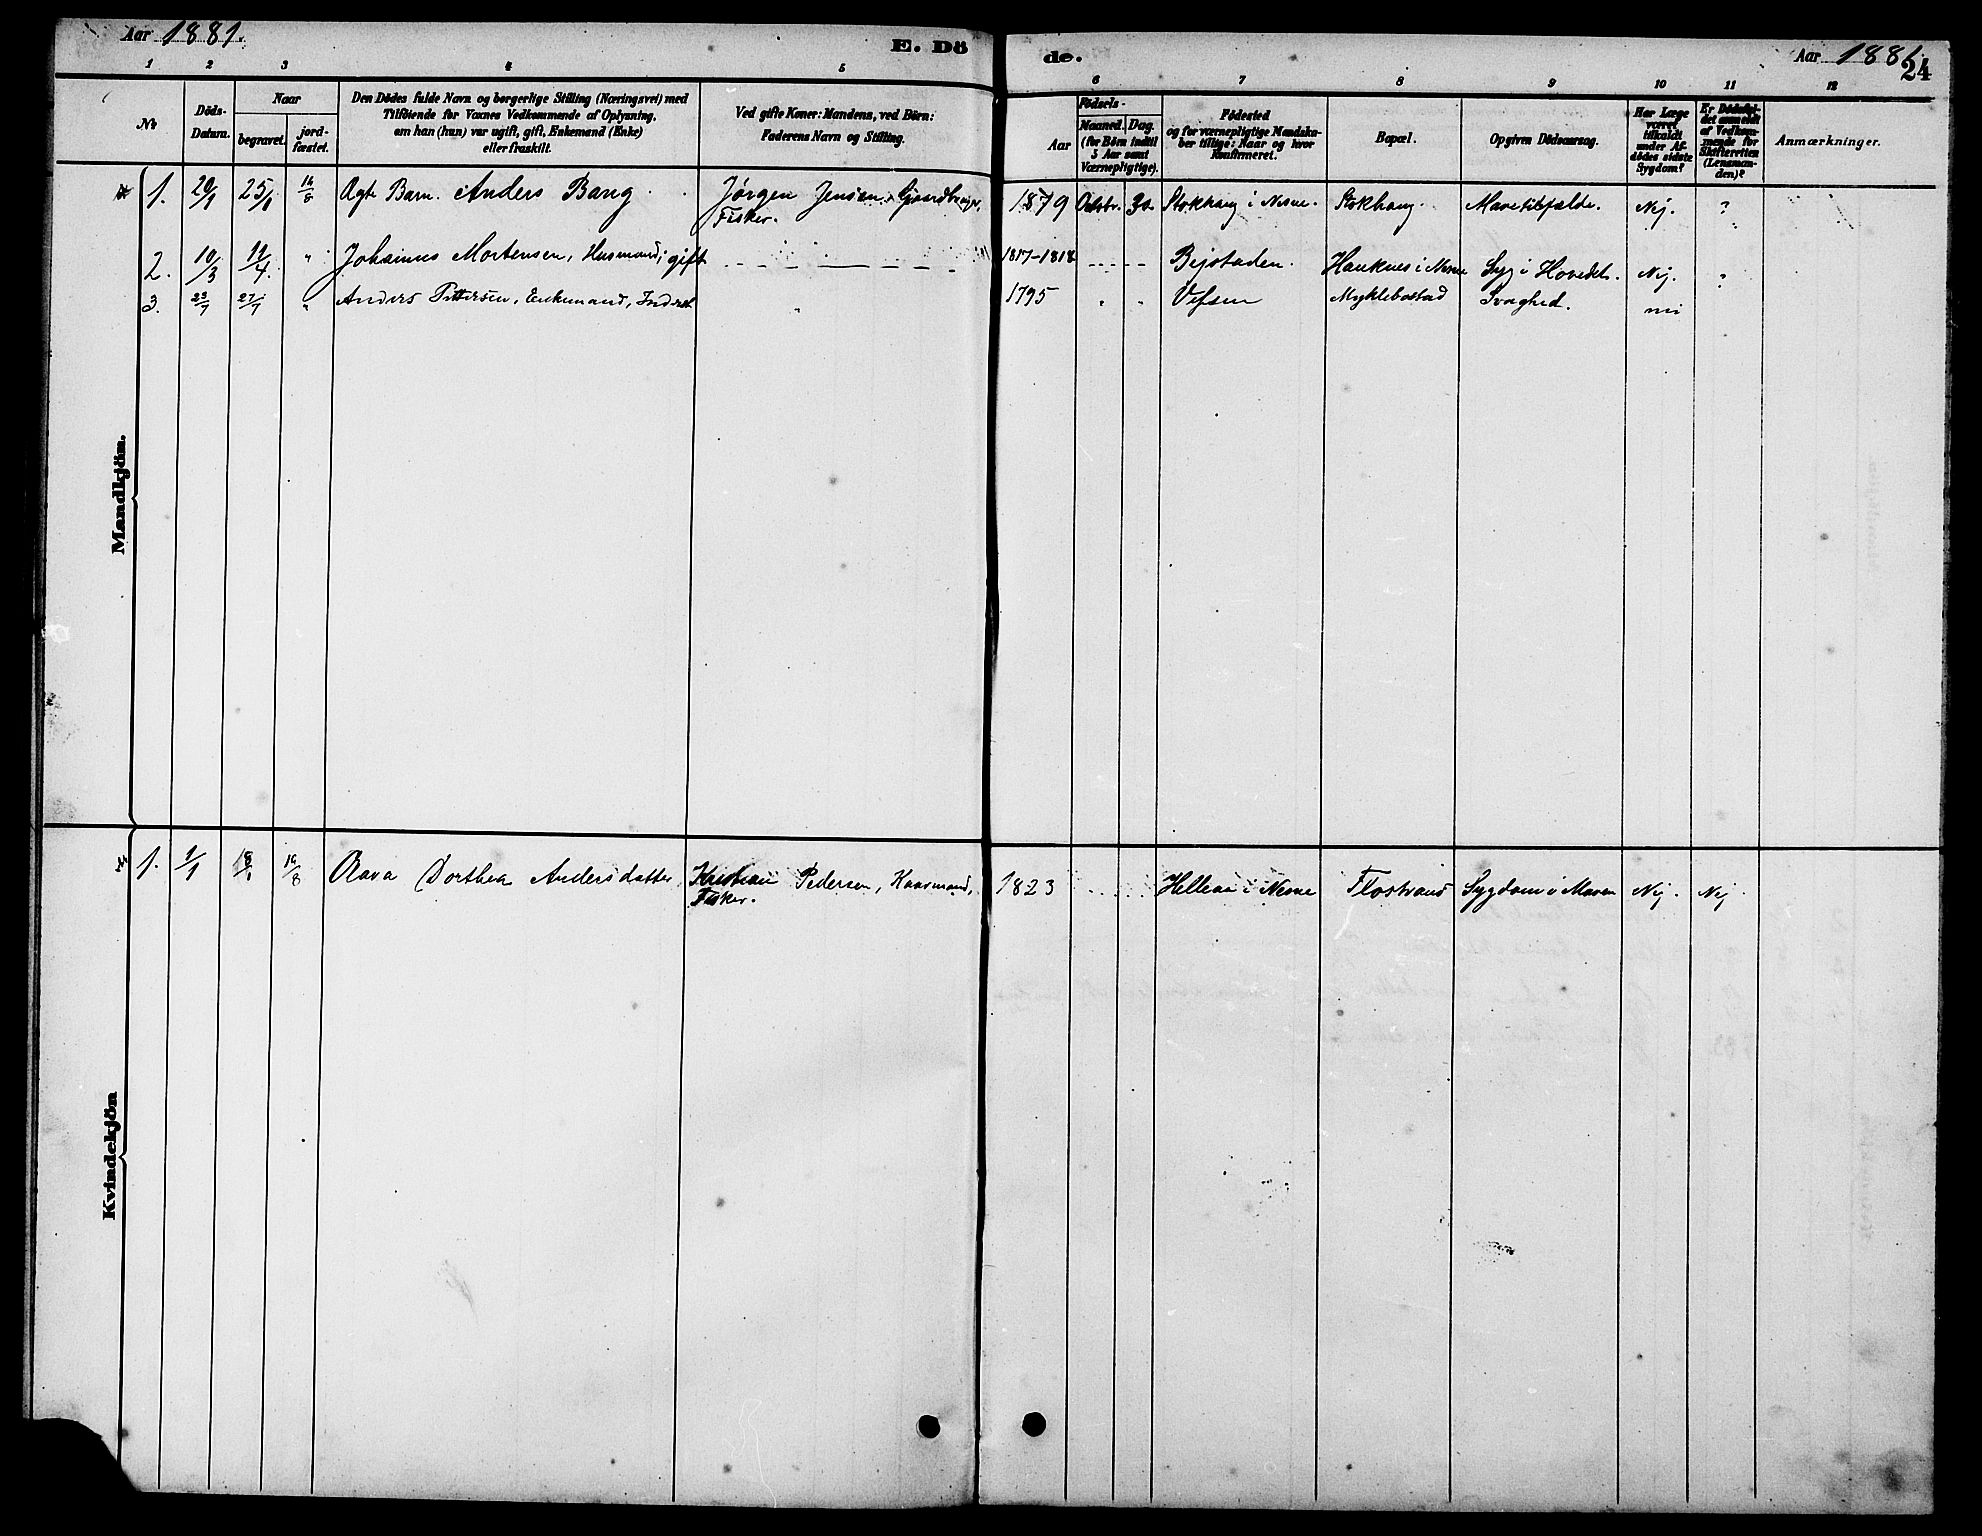 Aar 1881.
E. Dö
de.
Aar 1881.
24
1 2 3 4 5 6 7 8 9 10 11 12
No
Döds-
Datum.
Naar
begravet.
jord-
fæstet.
Den Dödes fulde Navn og borgerlige Stilling (Næringsvei) med
Tilföiende for Voxnes Vedkommende af Oplysning,
om han (hun) var ugift, gift, Enkemand (Enke)
eller fraskilt.
Ved gifte Koner: Mandens, ved Börn:
Faderens Navn og Stilling.
Födsels-
Aar
Maaned. Dag.
(for Börn indtil
5 Aar samt
Værnepligtige).
Födested
og for værnepligtige Mandska-
ber tillige: Naar og hvor
Konfirmeret.
Bopæl.
Opgiven Dödsaarsag.
Har Læge
været
tilkaldt
under Af-
dödes sidste
Sygdom?
Er Dödsfal-
det anmeldt
af Vedkom-
mende for
Skifteretten
(Lensman-
den)?
Anmærkninger.
Mandkjön.
1. 20/1 25/1 14/8 Ægt Barn. Anders Bang. Jørgen Jensen, Gaardbruger, 1879 Octbr. 30. Stokhaug i Nesne. Stokhaug. Mavetilfælde. Nej. ?
Fisker.
2. 10/3 14/4 " Johannes Mortensen, Husmand, gift 1817-1818 Bejstaden. Hauknes i Nesne Syg i Hovedet. Nej. ?
3. 23/7 27/7 " Anders Pettersen, Enkemand, Inderst " 1795 " " Vefsen Myklebostad Svaghed. nei
Kvindekjön
1. 9/1 18/1 14/8 Olava Dorthea Andersdatter, Kristian Pedersen, Kaarmand, 1823 Hellaa i Nesne Flostrand Sygdom i Maven Nej. Nej
Fisker.